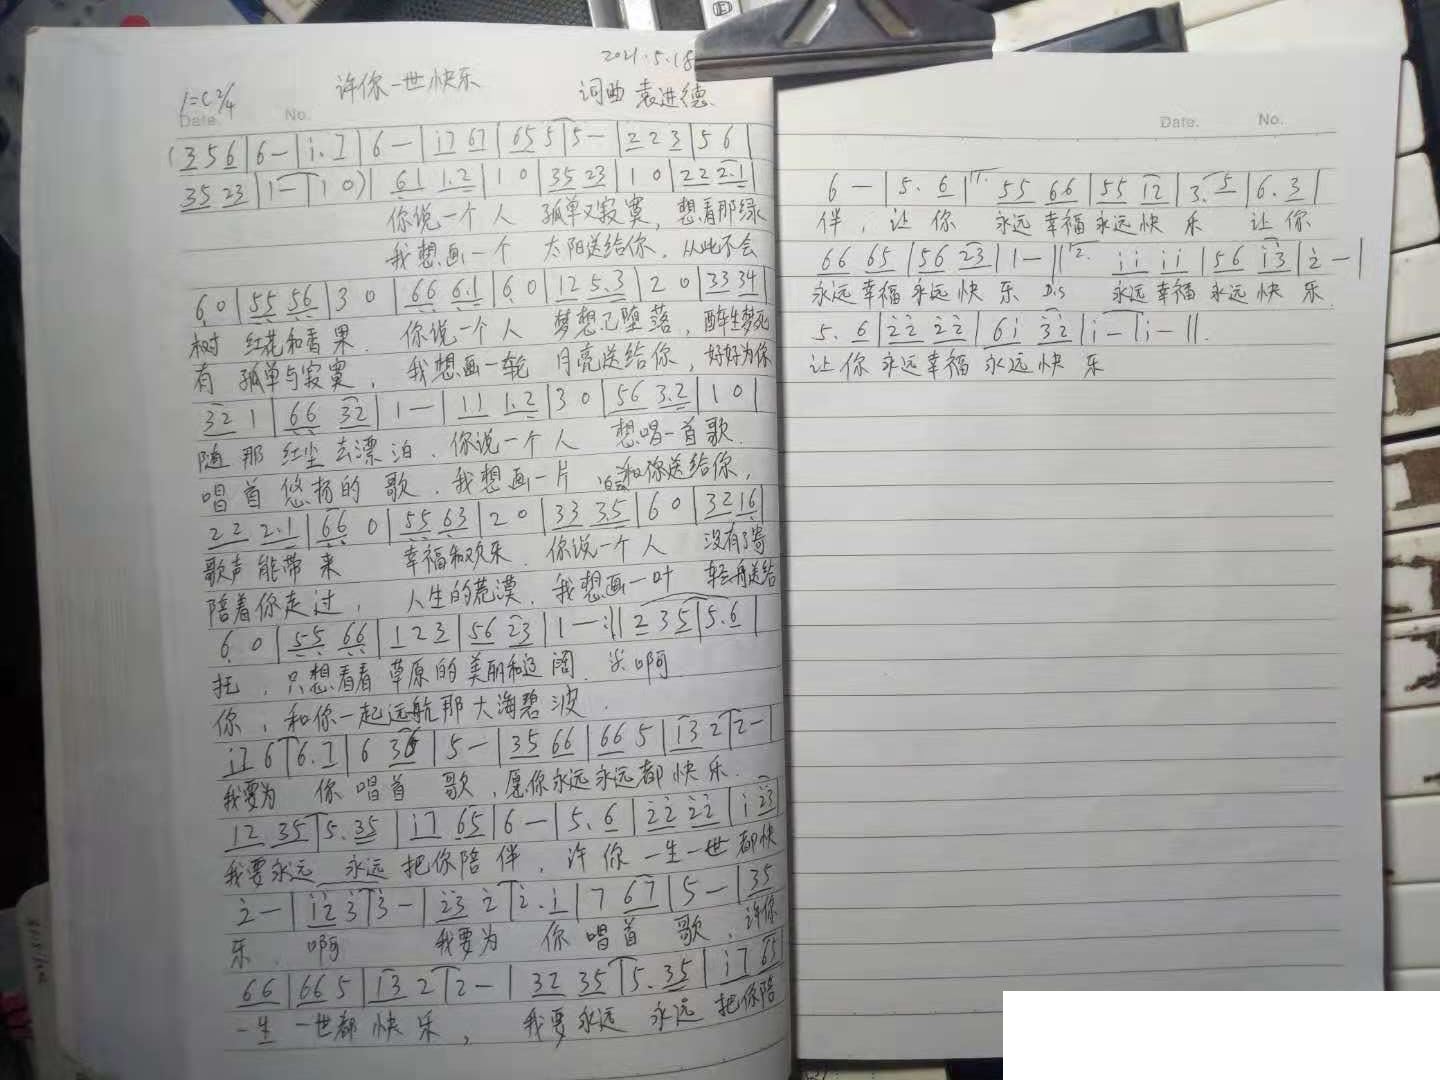 2021.5.18
许你一世快乐
1=C 2/4
词曲 袁进德
Date. No.
(3 5 6 | 6 — | i. 7 | 6 — | i7 67 | 65 5 | 5 — | 2 2 3 | 5 6 |
35 23 | 1 — | 1 0) | 61 1.2 | 1 0 | 35 23 | 1 0 | 22 2.1 |
你说一个人 孤单又寂寞,想看那绿
我想画一个 太阳送给你,从此不会
6 0 | 55 56 | 3 0 | 66 6.1 | 6 0 | 12 5.3 | 2 0 | 33 34 |
树 红花和香果. 你说一个人 梦想已堕落,醉生梦死
有 孤单与寂寞, 我想画一轮 月亮送给你,好好为你
32 1 | 66 32 | 1 — | 11 1.2 | 3 0 | 56 3.2 | 1 0 |
随那红尘去漂泊.你说一个人 想唱一首歌.
唱首悠扬的歌.我想画一片 和你送给你,
22 2.1 | 66 0 | 55 63 | 2 0 | 33 35 | 6 0 | 32 16 |
歌声能带来 幸福和欢乐.你说一个人 没有了寄
陪着你走过, 人生的荒漠.我想画一叶 轻舟送给
6 0 | 55 66 | 1 2 3 | 56 23 | 1 — :|| 2 3 5 | 5. 6 |
托,只想看看草原的美丽和辽阔. 啊.
你,和你一起远航那大海碧波.
i7 6 | 6. 7 | 6 36 | 5 — | 35 66 | 66 5 | i3 2 | 2 — |
我要为 你唱首 歌,愿你永远永远都快乐.
12 35 | 5. 35 | i7 65 | 6 — | 5. 6 | 22 22 | i 23
我要永远 永远把你陪伴,许你一生一世都快
2 — | i2 3 | 3 — | 23 2 | 2. i | 7 67 | 5 — | 35
乐. 啊 我要为 你唱首 歌,许你
66 | 66 5 | i3 2 | 2 — | 32 35 | 5. 35 | i7 65
一生一世都快乐, 我要永远 永远把你陪
Date. No.
6 — | 5. 6 | 1. 55 66 | 55 12 | 3. 5 | 6. 3 |
伴,让你 永远幸福永远快乐 让你
66 65 | 56 23 | 1 — || 2. ii ii | 56 i3 | 2 — |
永远幸福永远快乐 D.S 永远幸福永远快乐.
5. 6 | 22 22 | 6i 32 | i — | i — ||.
让你永远幸福永远快乐